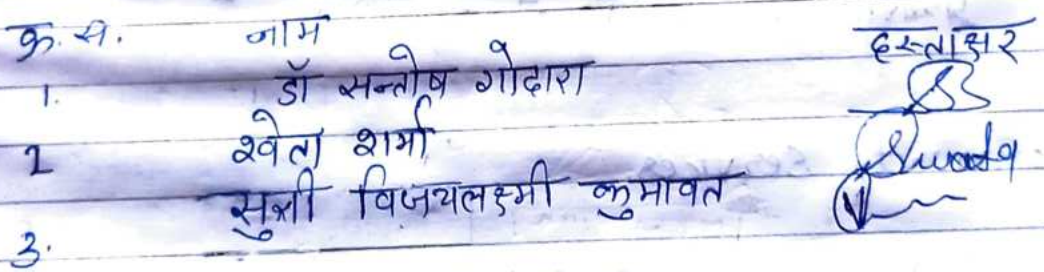 क्र.सं. नाम हस्ताक्षर
1. डॉ सन्तोष गोदारा
2 श्वेता शर्मा
सुश्री विजयलक्ष्मी कुमावत
3.